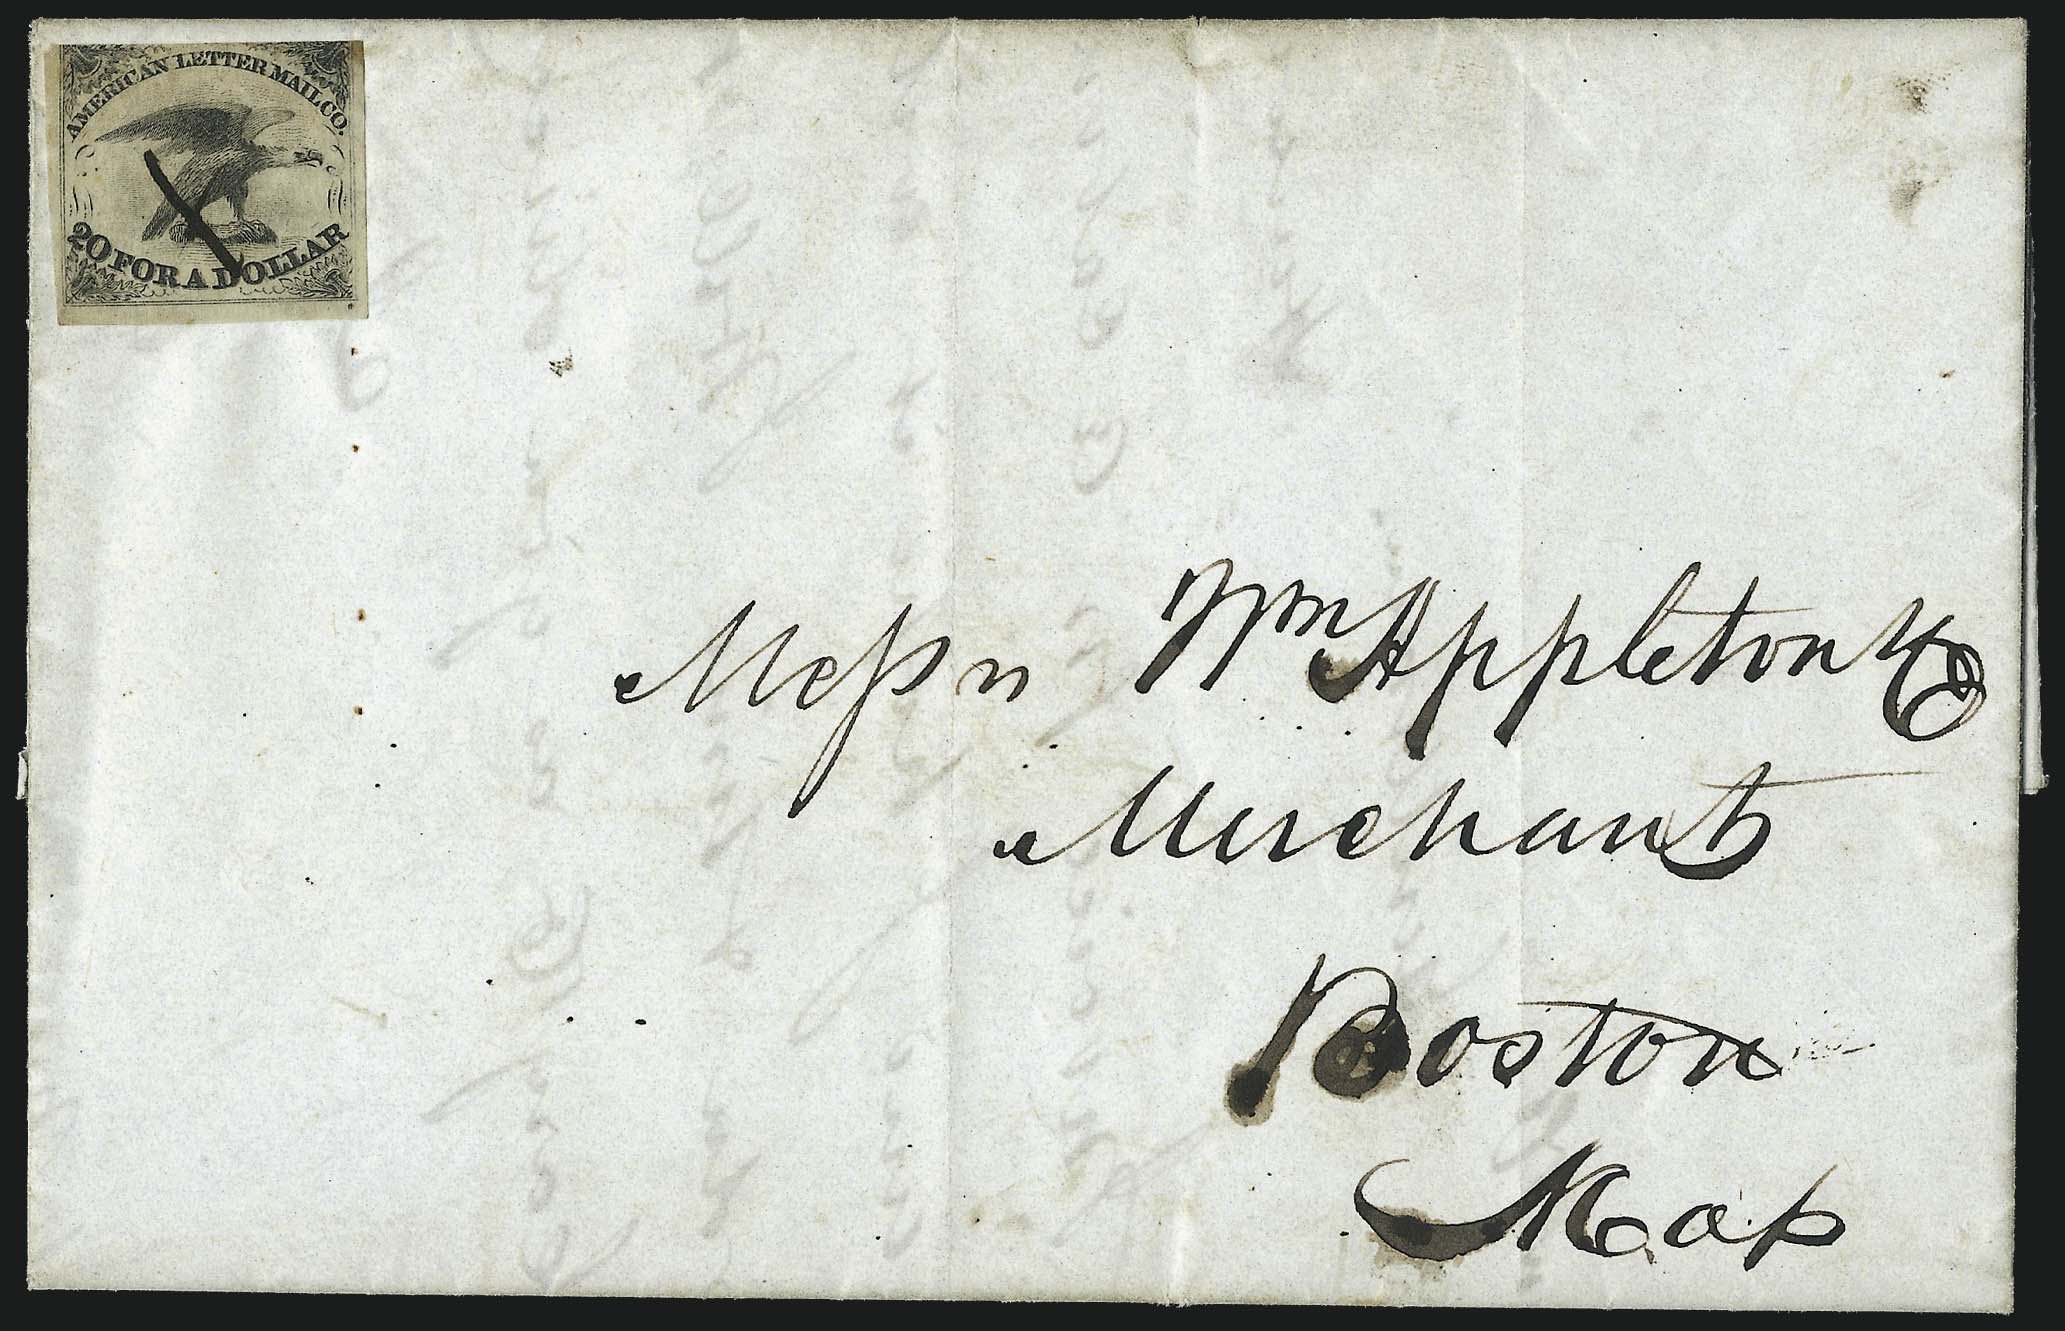 AMERICAN LETTER MAIL CO.
20 FOR A DOLLAR
Messrs Wm Appleton & Co
Merchants
Boston
Mass